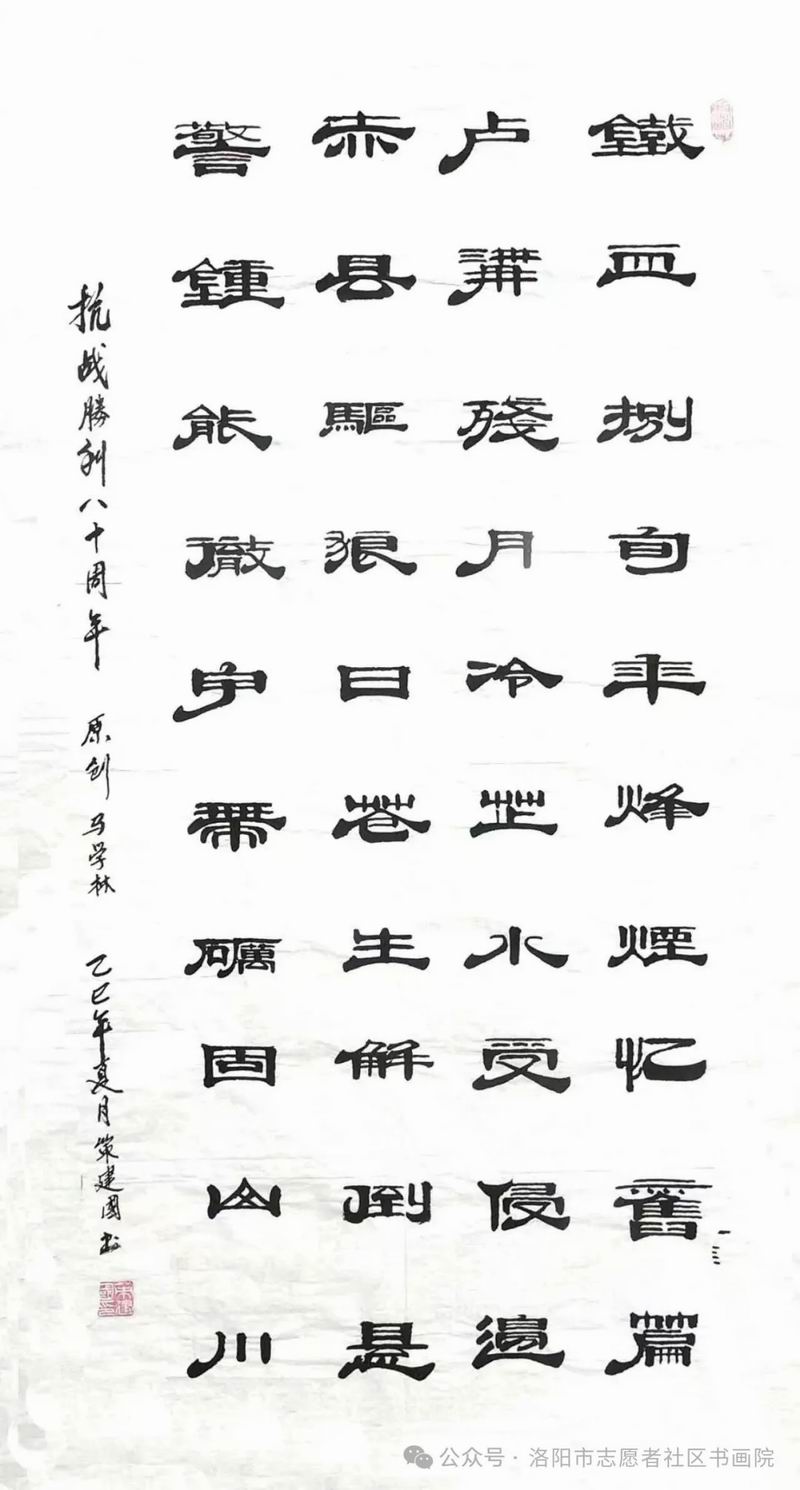 鐵血捌旬年烽煙忆舊篇
卢溝殘月冷芷水受侵邊
赤县驅狼日苍生解倒悬
警鍾能徹宇帶礪固山川
抗战勝利八十周年 原创 马学林 乙巳年夏月策建國书
公众号·洛阳市志愿者社区书画院